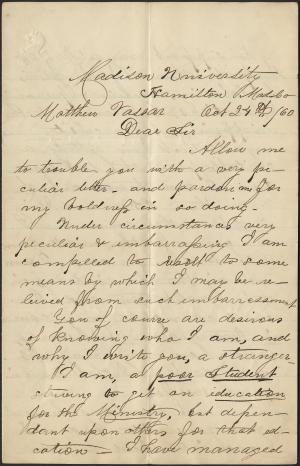 Madison University
Hamilton Mad. Co
Matthew Vassar Oct 24th /60
Dear Sir
Allow me
to trouble you with a very pe-
culiar letter - and pardon me for
my boldness in so doing -
Under circumstances very
peculiar & embarrassing I am
compelled to resort to some
means by which I may be re-
lieved from such embarrassment.
You of course are desirous
of knowing who I am, and
why I write you, a stranger
I am, a poor student
striving to get an education
for the Ministry, but depen-
dant upon others for that ed-
cation - I have managed